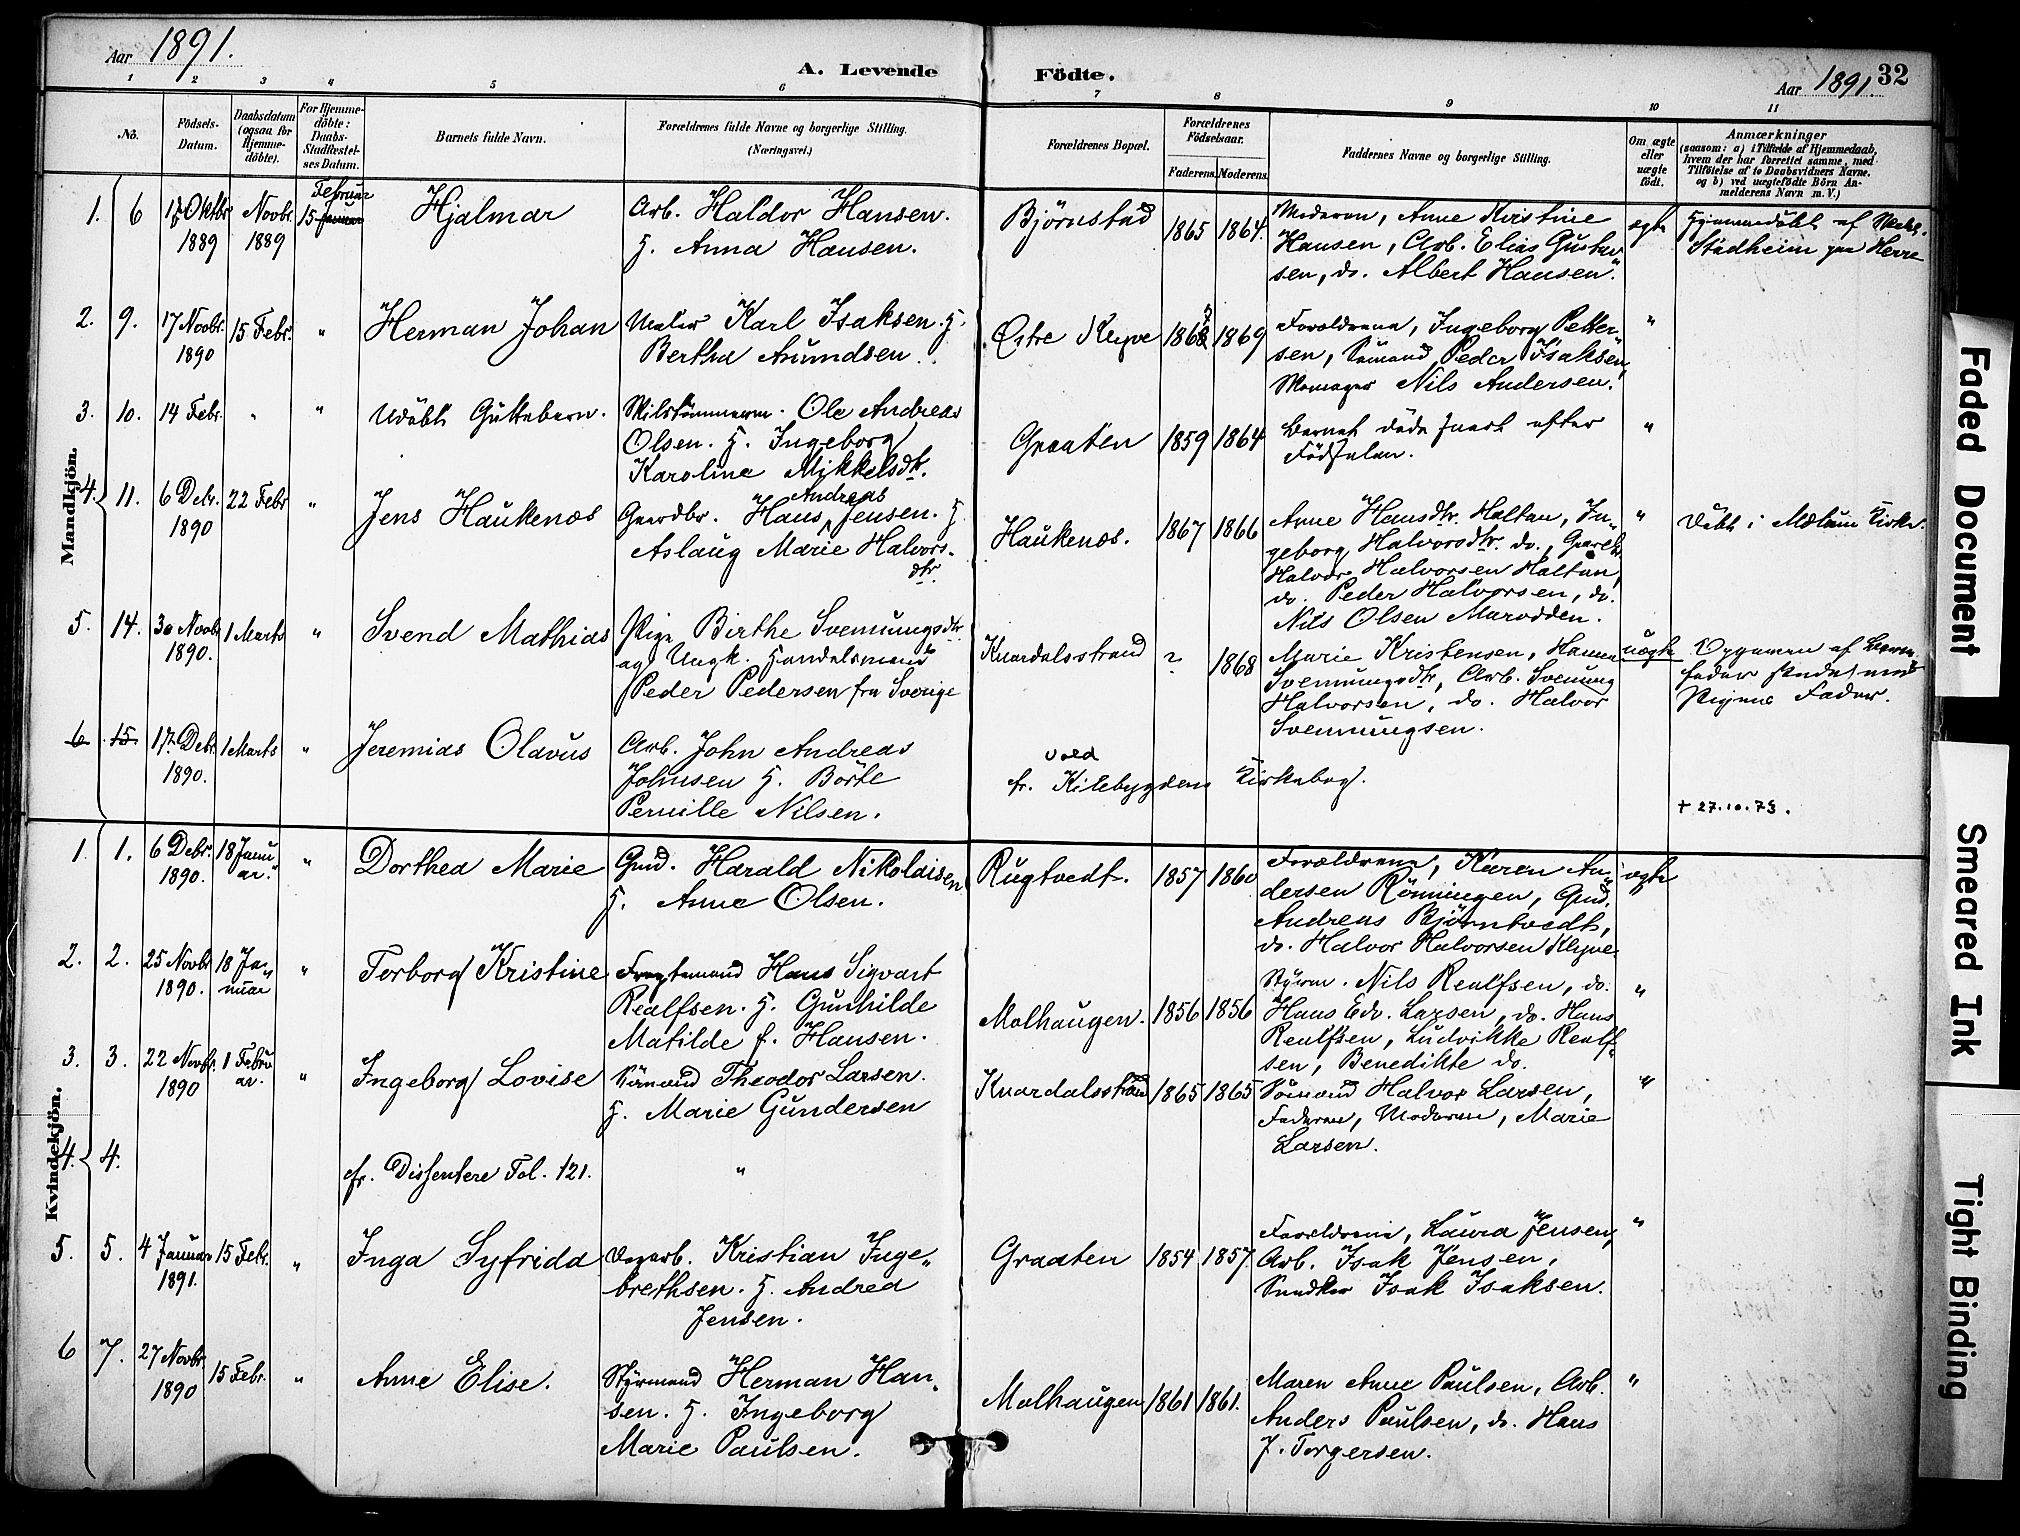 Aar 1891.
A. Levende Födte.
Aar 1891.
32
1 2 3 4 5 6 7 8 9 10 11
No.
Födsels-Datum.
Daabsdatum (ogsaa for Hjemme-döbte).
For Hjemme-döbte: Daabs-Stadfæstel-ses Datum.
Barnets fulde Navn.
Forældrenes fulde Navne og borgerlige Stilling. (Næringsvei.)
Forældrenes Bopæl.
Forældrenes Födselsaar.
Faderens. Moderens.
Faddernes Navne og borgerlige Stilling.
Om ægte eller uægte födt.
Anmærkninger
(saasom: a) i Tilfælde af Hjemmedaab,
hvem der har forrettet samme, med
Tilföielse af to Daabsvidners Navne.
og b) ved uægtefödte Börn An-
melderens Navn m. V.)
Mandkjön.
1. 6 17 Oktbr. 1889 Novbr. 1889 15 Februar Januar
Hjalmar
Arb. Haldor Hansen.
H. Anna Hansen.
Björnstad 1865 1864.
Moderen, Anne Kristine
Hansen, Arb. Elias Gustav-
sen, do. Albert Hansen.
ægte
Hjemmedöbt af
Stadheim paa Herre
2. 9. 17 Novbr. 1890 15 Febr. "
Herman Johan
Maler Karl Isaksen. H.
Bertha Amundsen.
Østre Klyve 1869
Forældrene, Ingeborg Petter-
sen, Sömand Peder Isaksen,
Nils Andersen.
"
3. 10. 14 Febr. " "
Udöbt Guttebarn.
Skibstömmerm. Ole Andreas
Olsen. H. Ingeborg
Karoline Mikkelsdtr.
Graaten 1859 1864
Barnet döde snart efter
Födselen.
"
4. 11. 6 Debr. 1890 22 Febr "
Jens Haukenæs
Gaardbr. Hans Andreas Jensen. H
Aslaug Marie Halvors-
dtr.
Haukenæs. 1867 1866
Anne Hansdtr. Haltan, In-
geborg Halvorsdtr. do., Gaardbr.
Halvor Halvorsen Haltan,
do. Peder Halvorsen, do.
Nils Olsen Marodden.
"
Döbt i Mælum Kirke.
5. 14. 30 Novbr 1890. 1 Marts "
Svend Mathias
Pige Birthe Svenungsdtr
og Ungk. Handelsmand
Peder Pedersen fra Sverige
Knardalsstrand ? 1868
Marie Kristensen, Hanna
Svennungsdtr, Arb. Svenung
Halvorsen, do. Halvor
Svennungsen.
uægte
Opgaven af Barne-
fader
Pigens Fader.
6 15. 17 Debr. 1890. 1 Marts "
Jeremias Olavus
Arb. John Andreas
Johnsen H. Börte
Pernille Nilsen.
Vold
cfr. Kilebygdens Kirkebog.
+ 27.10.73.
Kvindekjön.
1. 1. 6 Debr. 1890. 18 Janu-ar. "
Dorthea Marie
Gmd. Harald Nikolaisen
H. Anne Olsen.
Rugtvedt. 1857 1860
Forældrene, Karen An-
dersen Rönningen, Gmd.
Andreas Björntvedt,
do. Halvor Halvorsen Klyve.
ægte
2. 2. 25 Novbr 1890. 18 Ja-nuar "
Torborg Kristine
Fragtemand Hans Sigvart
Realfsen. H. Gunhilde
Matilde f. Hansen.
Molhaugen. 1856 1856
Styrm. Nils Realfsen, do.
Hans Edv. Larsen, do. Hans
Realfsen, Ludvikke Realf-
sen, Benedikte do.
"
3. 3. 22 Novbr. 1890 1 Febru-ar. "
Ingeborg Lovise
Sömand Theodor Larsen.
H. Marie Gundersen
Knardalsstrand 1865 1865
Sömand Halvor Larsen,
Faderen, Moderen, Marie
Larsen.
"
4. 4.
cfr. Dissentere Fol. 121.
"
5. 5. 4 Januar 1891. 15 Febr. "
Inga Syfrida
Dagarb. Kristian Inge-
brethsen. H. Andrea
Jensen.
Graaten 1854 1857
Forældrene, Laura Jensen,
Arb. Isak Jensen,
Snedker Isak Isaksen.
"
6 7. 27 Novbr. 1890 15 Febr. "
Anne Elise.
Styrmand Herman Han-
sen. H. Ingeborg
Marie Paulsen.
Molhaugen 1861 1861.
Maren Anne Paulsen, Arb.
Anders Paulsen, do. Hans
J. Torgersen.
"
Faded Document
Smeared Ink
Tight Binding